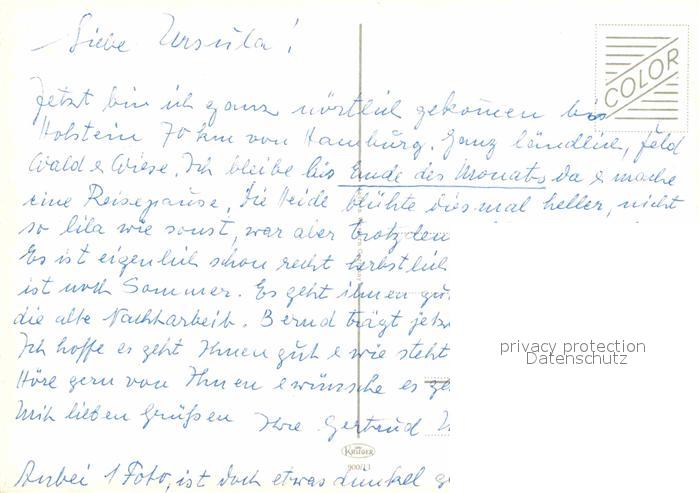 Liebe Ursula!
Jetzt bin ich ganz nördlich gekommen bis
Holstein 70 km von Hamburg. Ganz ländlich, Feld
Wald & Wiese. Ich bleibe bis Ende des Monats da & mache
eine Reisepause. Die Heide blühte diesmal heller, nicht
so lila wie sonst, war aber trotzdem
Es ist eigentlich schon recht herbstlich
ist noch Sommer. Es geht ihnen gut
die alte Nachharbeit. Bernd trägt jetz
Ich hoffe es geht Ihnen gut & wie steht
Höre gern von Ihnen & wünsche es ge
Mit lieben Grüßen Ihre Gertrud
Anbei 1 Foto, ist doch etwas dunkel g
COLOR
privacy protection
Datenschutz
KRÜGER
900/13